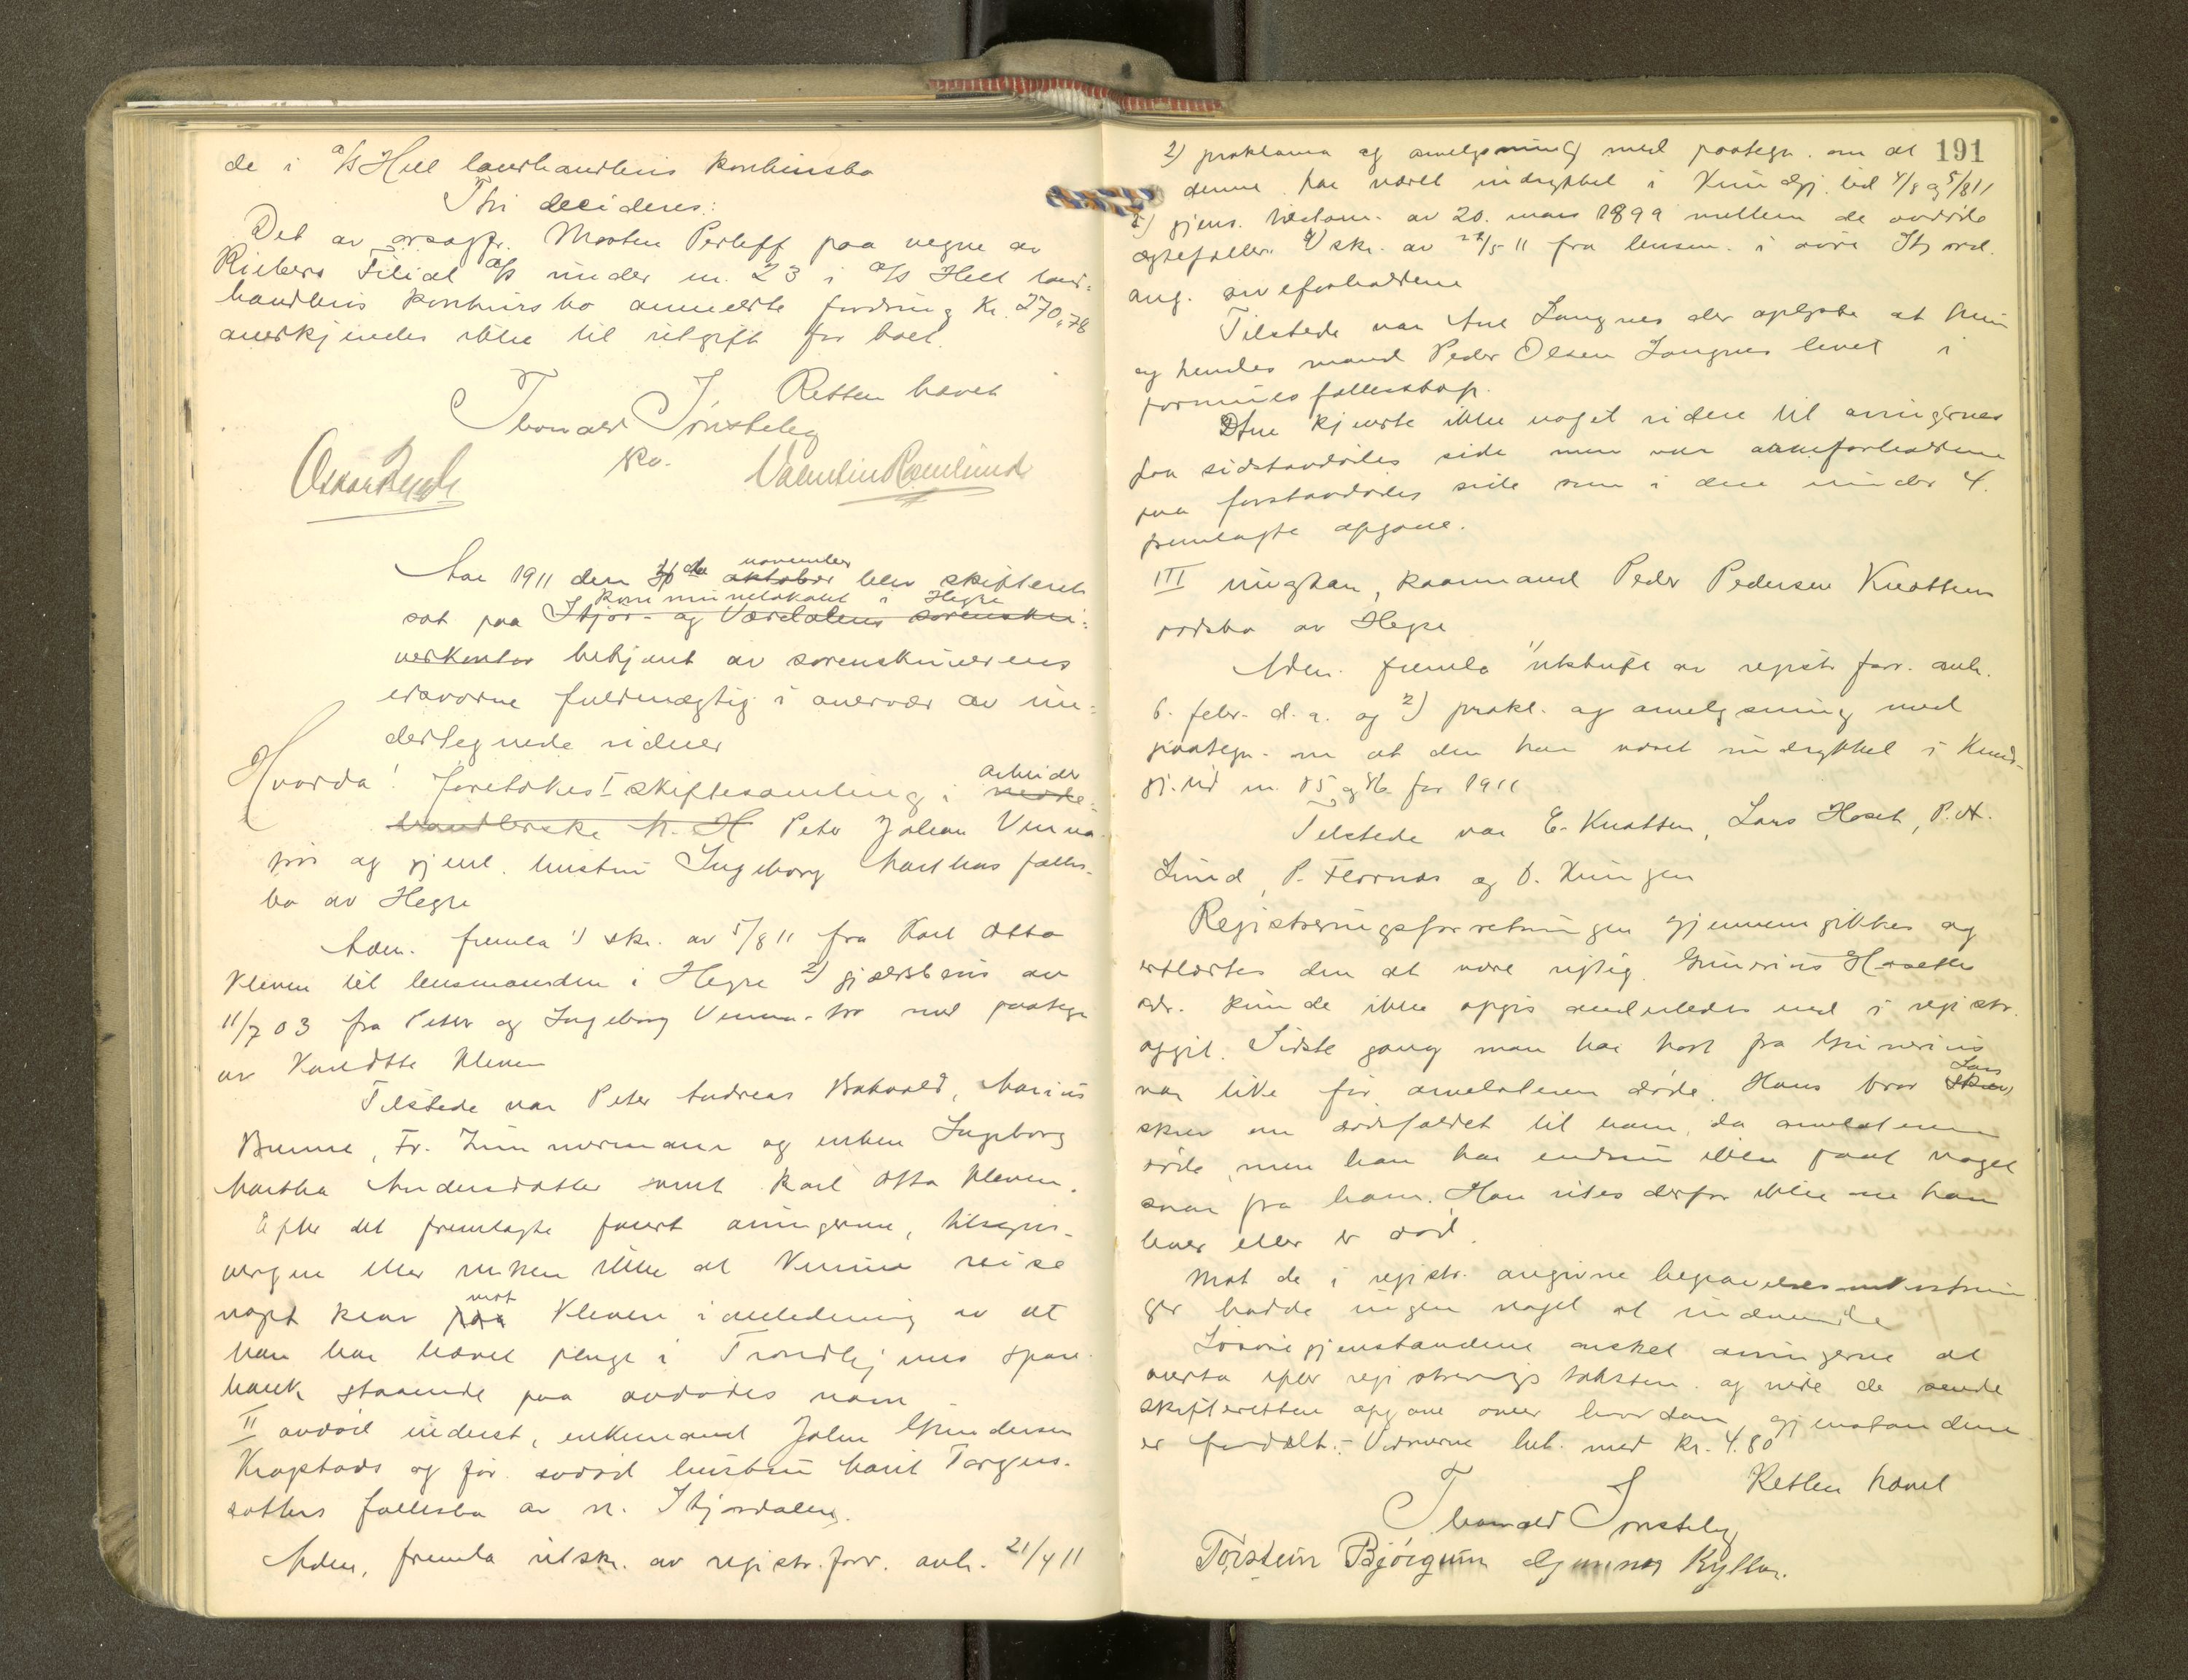 de i A/S Hell landhandleris konkursbo
Thi decideres:
Det av orsagfr. Morten Perleff paa vegne av
Riebers Filial A/S under nr. 23 i A/S Hell land-
handleris konkursbo anmeldte fordring kr. 270,78
anerkjendes ikke til utgift for boet.
Retten hævet
Thorvald Sönsteby
kv.
Oskar Valentin Ramlund
Aar 1911 den 30 de oktober november blev skifteret
sat paa Stjør- og Værdalens sorenskri- kommunelokalet i Hegre
verkontor betjent av sorenskriverens
edsvorne fuldmægtig i overvær av un-
dertegnede vidner
Hvorda! Foretokes I skiftesamling i arbeider
handlerske M. H Peter Johan Venna-
tro og gjenl. hustru Ingeborg Marthas fælles-
bo av Hegre
Adm. fremla 1) skr. av 5/8 11 fra Karl Otto
Kleven til lensmanden i Hegre 2) gjældsbrev av
11/7 03 fra Peter og Ingeborg Venna-tro med paategn
av Karl Otto Kleven
Tilstede var Peter Andreas Bakvold, Marius
Bunne, Fr. Zimmermann og enken Ingeborg
Martha Andersdatter samt Karl Otto Kleven.
Efter det fremlagte fandt arvingerne, tilsyns-
vergen eller enken ikke at kunne reise
noget krav paa mot Kleven i anledning av at
han har hævet penge i Trondhjems spare-
bank staaende paa avdødes navn
II avdød inderst, enkemand John Gundersen
Kragstads og før avdød hustru Marit Torgers-
datters fællesbo av n. Stjørdalen.
Adm. fremla utskr. av registr.forr. avh. 21/4 11
191
2) proklama og arvelysning med paategn. om at
denne har været indrykket i Kundgj. tid 4/8 og 5/8 11
3) gjens. testam. av 20. mars 1899 mellem de avdøde
ægtefæller 4) skr. av 22/5 11 fra lensm. i øvre Stjørd.
ang. arveforholdene
Tilstede var Ane Langnes der oplyste at hun
og hendes mand Peder Olsen Langnes levet i
formuesfællesskap.
Ane kjendte ikke noget videre til arvingernes
paa sidstavdødes side men var arveforholdene
paa førstavdødes side som i den under 4.
fremlagte opgave.
III ungkar, kaarmand Peder Pedersen Knottens
dødsbo av Hegre
Adm. fremla 1) utskrift av registr forr. avh.
6. febr. d. a. og 2) prokl. og arvelysning med
paategn. om at den har været indrykket i Kund-
gj. tid nr. 85 og 86 for 1911
Tilstede var E. Knotten, Lars Hoset, P. A.
Lund, P. Flornes og O. Kringen
Registreringsforretningen gjennemgikkes og
erklærtes den at være rigtig. Gunerius Hosets
adr. kunde ikke opgis anderledes end i registr.
opgit. Sidste gang man har hørt fra Gunerius
var like før arvelateren døde. Hans bror Lars
skrev om dødsfaldet til ham, da arvelateren
døde, men han har endnu ikke faat noget
svar fra ham. Han vites derfor ikke om han
lever eller er død.
Mot de i registr. angivne begravelsesomkostnin
ger hadde ingen noget at indvende
Løsøregjenstandene ønsket arvingerne at
overta efter registreringstaksten og vilde de sende
skifteretten opgave over hvordan gjenstandene
er fordelt.- Vidnerne bet. med kr. 4.80
Retten hævet
Thorvald Sönsteby
Torstein Bjørgum Gunnar Kyllo.